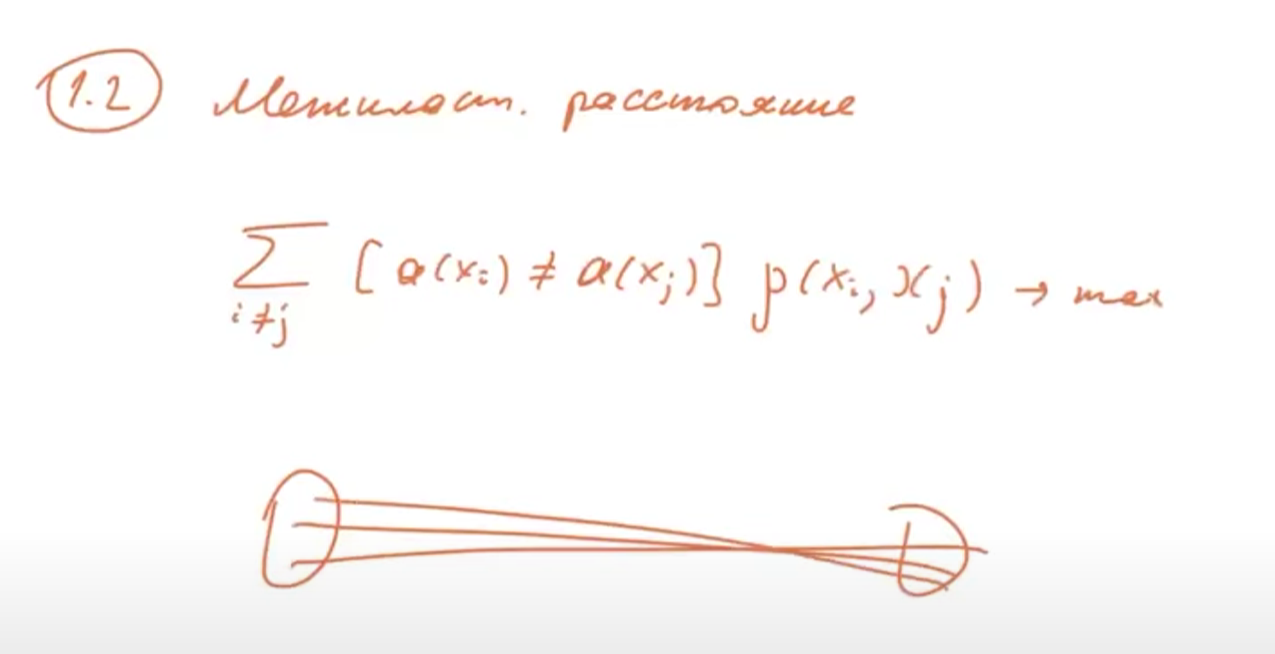 1.2 Межкласт. расстояние
∑ [a(xᵢ) ≠ a(xⱼ)] ρ(xᵢ, xⱼ) → max
i ≠ j